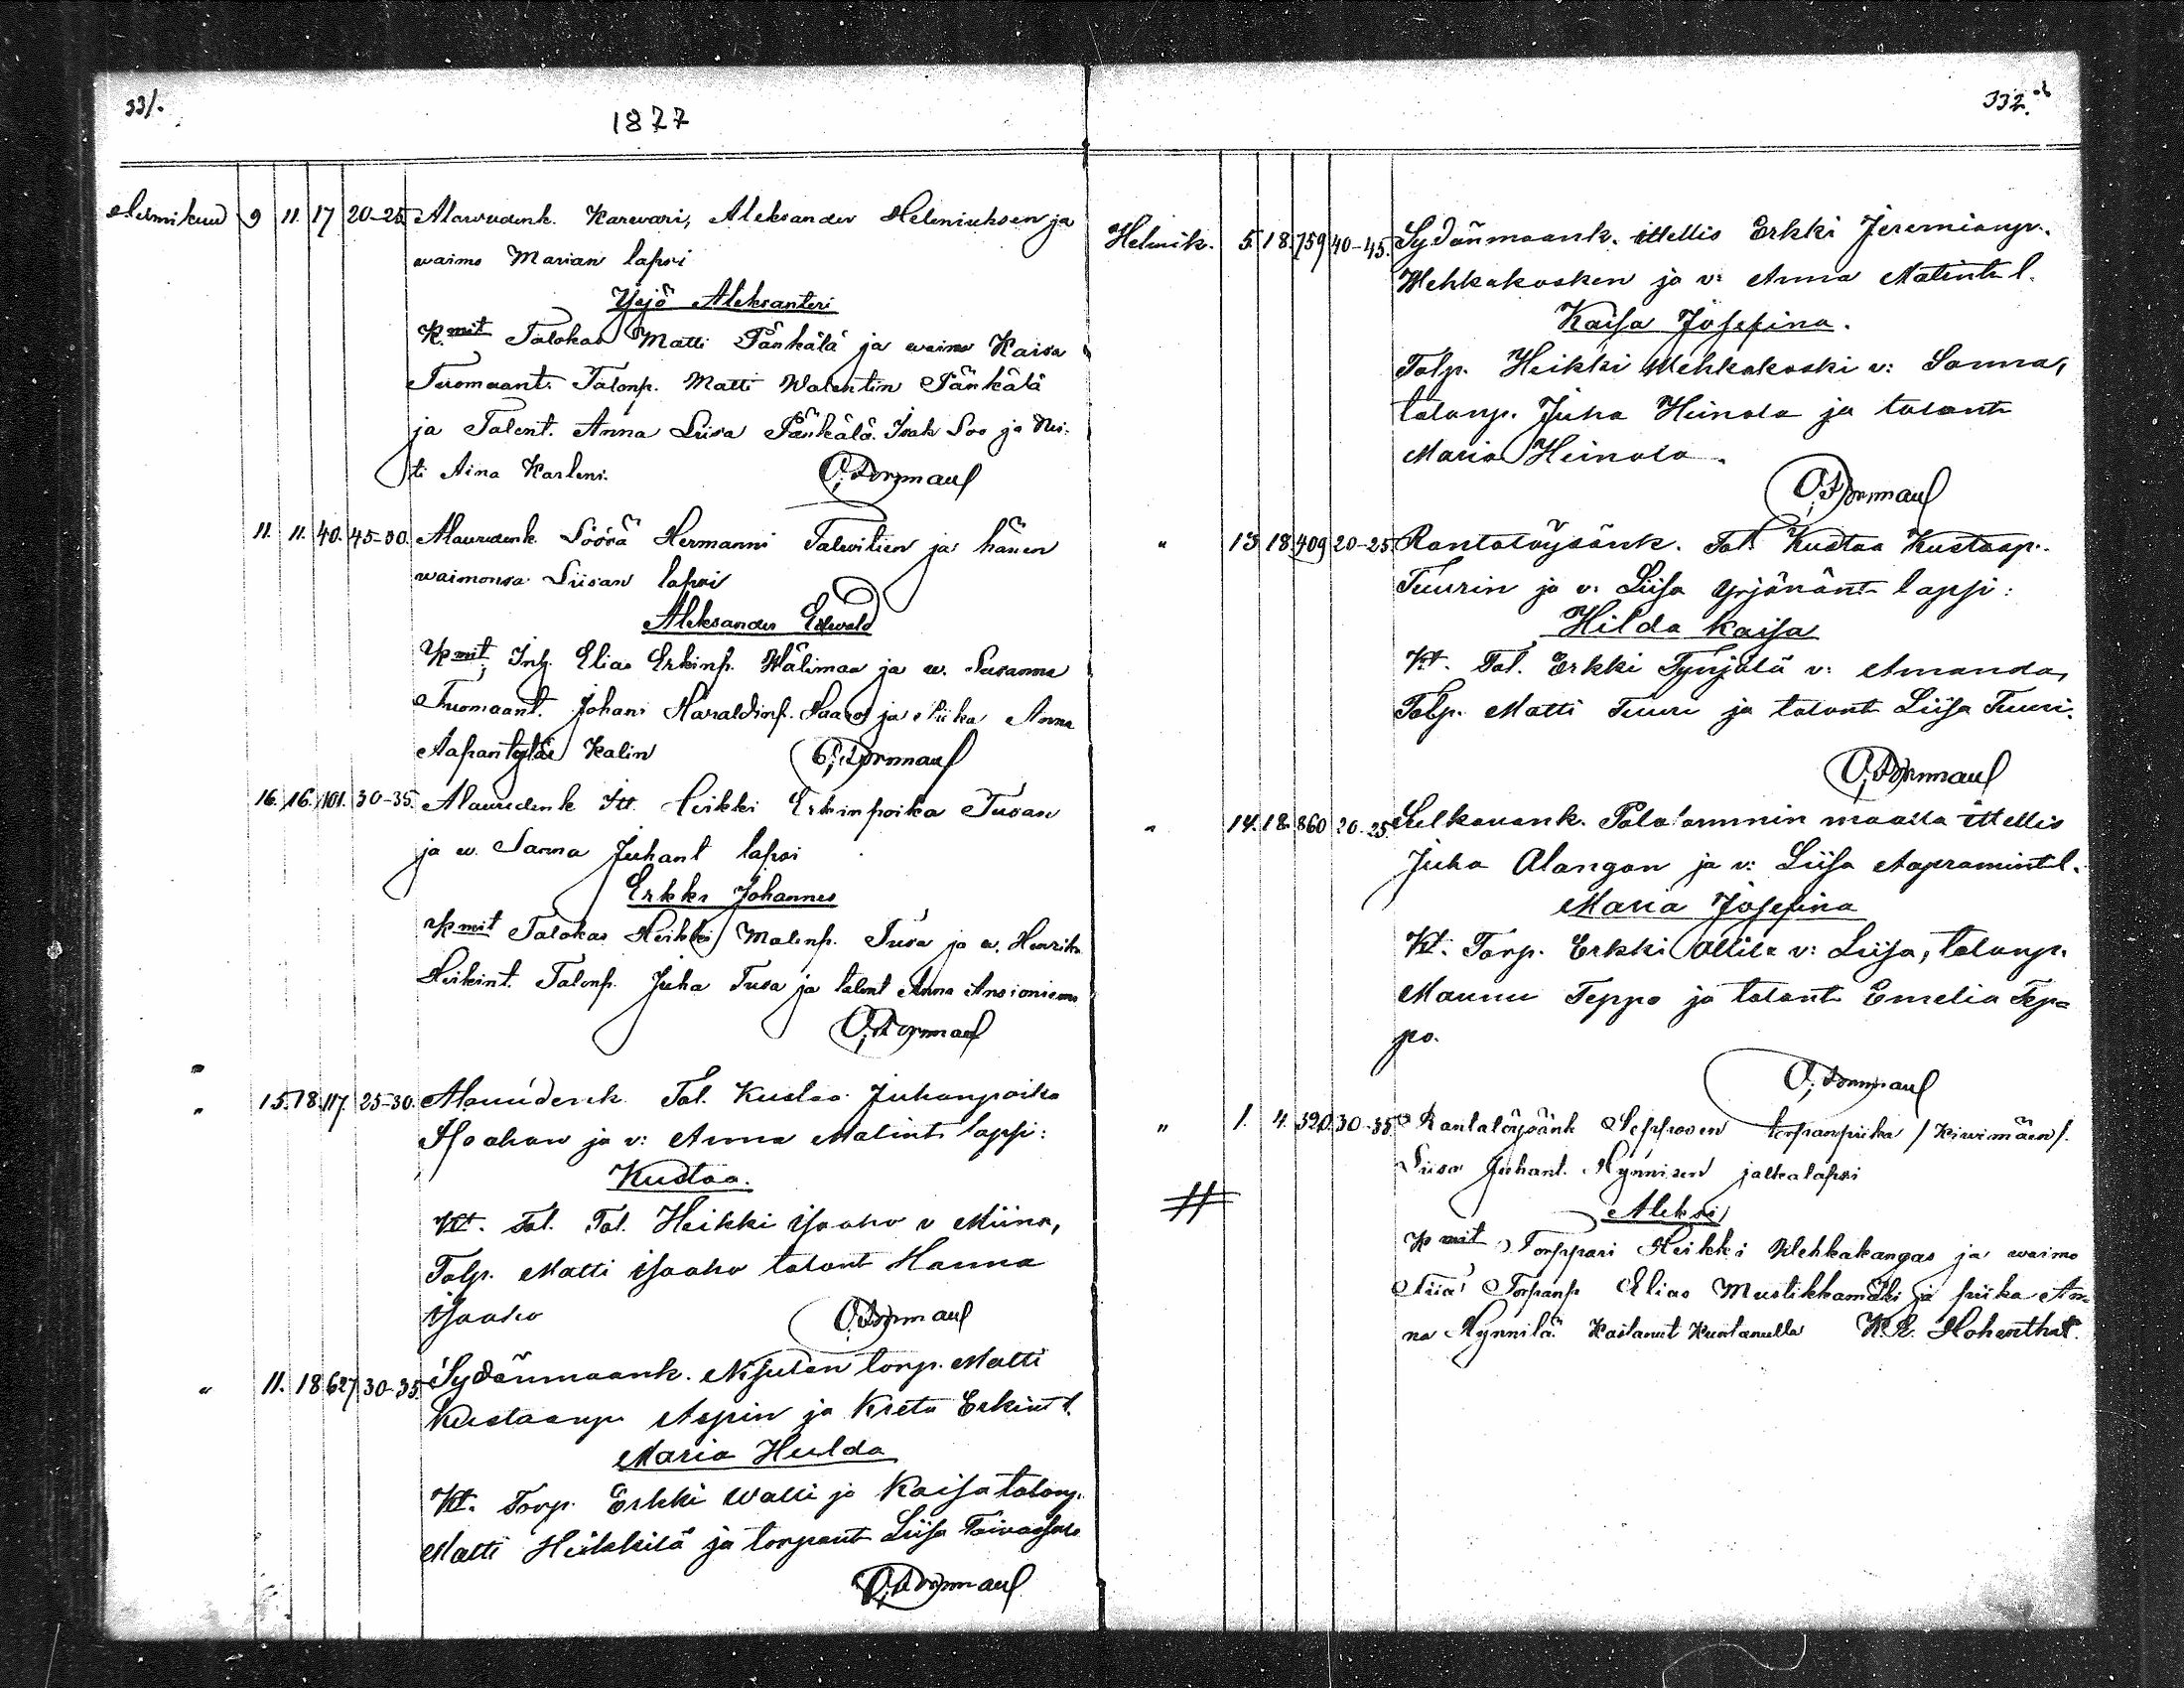 331.
1877
Helmikuu 9 11. 17 20-25 Alavudenk. Karvari, Aleksander Heleniuksen ja
waimo Marian lapsi
Yrjö Aleksanteri
K.mit Talokas Matti Pänkälä ja waimo Kaisa
Tuomaant. Talonp. Matti Walentin Pänkälä
ja Talont. Anna Liisa Pänkälä. Isak Soo ja Nei-
ti Aina Karleni.
11. 11. 40. 45-50. Alavudenk. Söörä Hermanni Talvitien ja hänen
waimonsa Liisan lapsi
Aleksander Edvald
K mit; Inh. Elias Erkinp. Wälimaa ja w. Susanna
Tuomaant. Johan Haraldinp. ja Piika Anna
Kalin
16. 16. 101. 30-35. Alavudenk Itt. Heikki Erkinpoika Tusan
ja w. Sanna Juhant lapsi
Erkki Johannes
K mit Talokas Heikki Matinp. Tusa ja w. Henrika
Heikint. Talonp. Juha Tusa ja talont Anna Ansioniemi
" 15. 18. 117. 25-30. Alavudenk. Tal. Kustaa Juhanpoika
Isoahon ja v: Anna Matint. lapsi:
Kustaa.
Kt. Tal. Tal. Heikki Isoaho v Miina,
Talp. Matti Isoaho talont Hanna
Isoaho
" 11. 18 627 30-35. Sydänmaank. Nisulan torp. Matti
Kustaanp. Aspin ja Kreta Erkint l.
Maria Hulda
Kt. Torp. Erkki Walli ja Kaisa talonp.
Matti Heikkilä ja torpant Liisa
332.
Helmik. 5. 18. 759 40-45. Sydänmaank. ittellis Erkki Jeremianp.
Wehkakosken ja v: Anna Matint l.
Kaisa Josefina.
Talp. Heikki Wehkakoski v: Sanna,
talonp. Juha Heinola ja talont
Maria Heinola.
" 13 18. 409 20-25 Rantatöysänk. Tal. Kustaa Kustaap.
Tuurin ja v: Liisa Yrjönänt lapsi:
Hilda Kaisa
Kt. Tal. Erkki Tynjälä v: Amanda,
Talp. Matti Tuuri ja talont Liisa Tuuri.
" 14. 18. 860 20-25 Sulkavank. maalla ittellis
Juha Alangon ja v: Liisa Aapramint l.
Maria Josefina
Kt. Torp. Erkki Ollila v: Liisa, talonp.
Maunu Teppo ja talont Emelia Tep=
po.
" 1. 4. 320. 30-35 Rantatöysänk Sepposen torpanpiika /Kivimäen/.
Liisa Juhant. Hynnisen jalkalapsi
#
Aleksi
K mit Torppari Heikki Wehkakangas ja waimo
Torpanp Elias Mustikkamäki ja piika An-
na Hynnilä. Kastanut Kuortaneella K. R. Hohenthal.